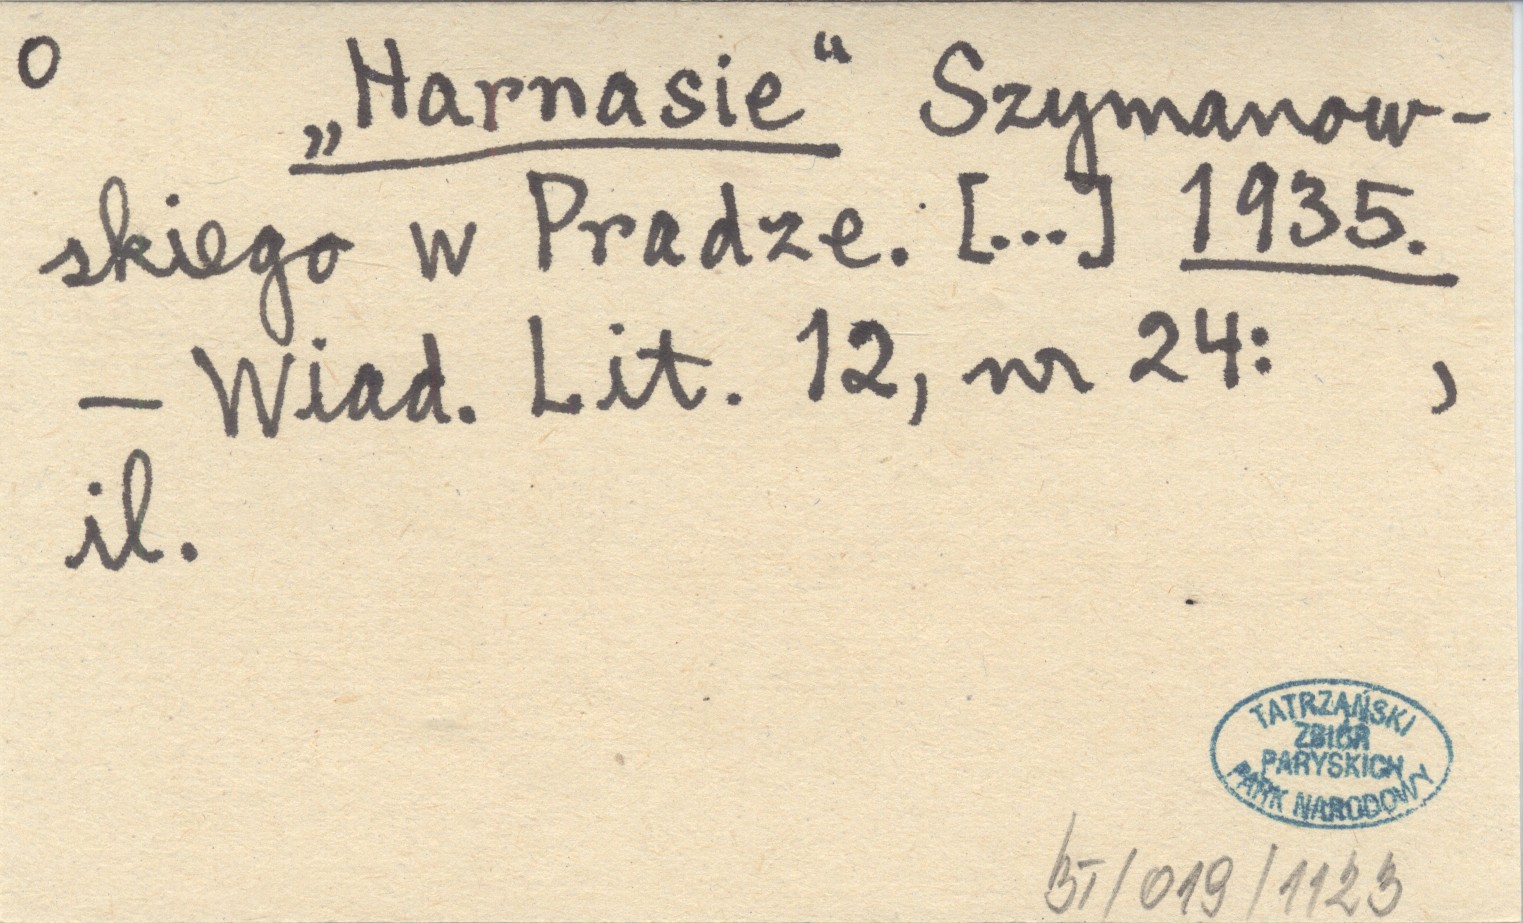 O
„Harnasie“ Szymanow-
skiego w Pradze. [...] 1935.
– Wiad. Lit. 12, nr 24: ,
il.
TATRZAŃSKI
ZBIÓR
PARYSKICH
PARK NARODOWY
BT/019/1123